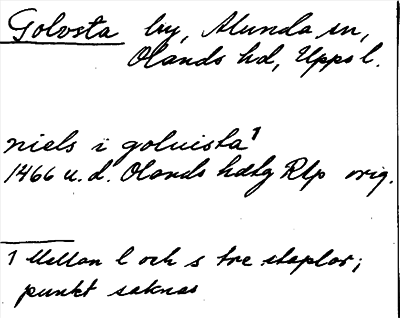 Golvsta by, Alunda sn,
Olands hd, Upps l.
niels i goluista¹
1466 u. d. Olands hdtg Rlp orig.
1 Mellan l och s tre staplar;
punkt saknas